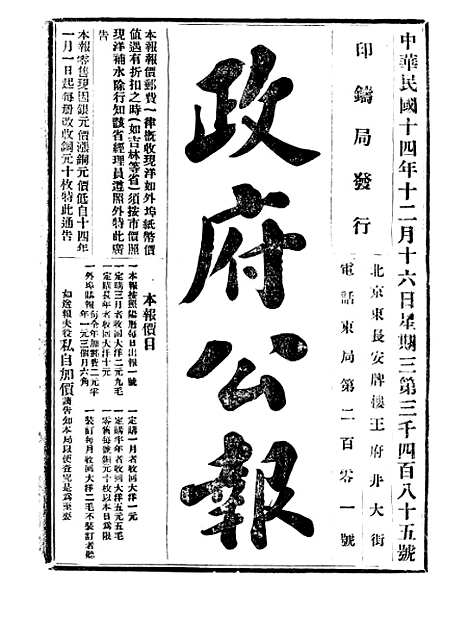 中華民國十四年十二月十六日星期三第三千四百八十五號
印鑄局發行
北京東長安牌樓王府井大街
電話東局第二百零一號
政府公報
本報報價郵費一律概收現洋如外埠紙幣價
值遇有折扣之時(如吉林等省)須按市價照
現洋補水除行知該省經理員遵照外特此廣
告
本報零售現因銀元價漲銅元價低自十四年
一月一日起每册改收銅元十枚特此通告
本報價目
一本報按照陽曆每日出報一號
一定購三月者收回大洋二元九毛
一定購長年者收回大洋十元
一外埠購報每全年加郵費二元半
年一元三個月六角
一定購一月者收回大洋一元
一定購半年者收回大洋五元五毛
一零售每號銅元十枚以本日為限
一裝訂每月收回大洋二毛不裝訂者聽
如送報夫役私自加價請告知本局以便查究是為至要